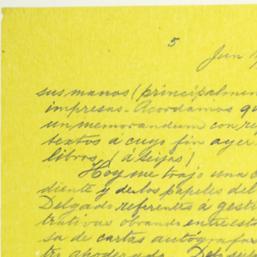 5
Jun
sus manos (principalmen
impresas. Acordamos qu
un memorandum con re
textos a cuyo fin ayer
libros (a Seijas)
Hoy me trajo una c
diente y de los papeles del
Delgado referentes a gesti
trativas obrando entre esta
sa de cartas autógrafas
tro apoderado.